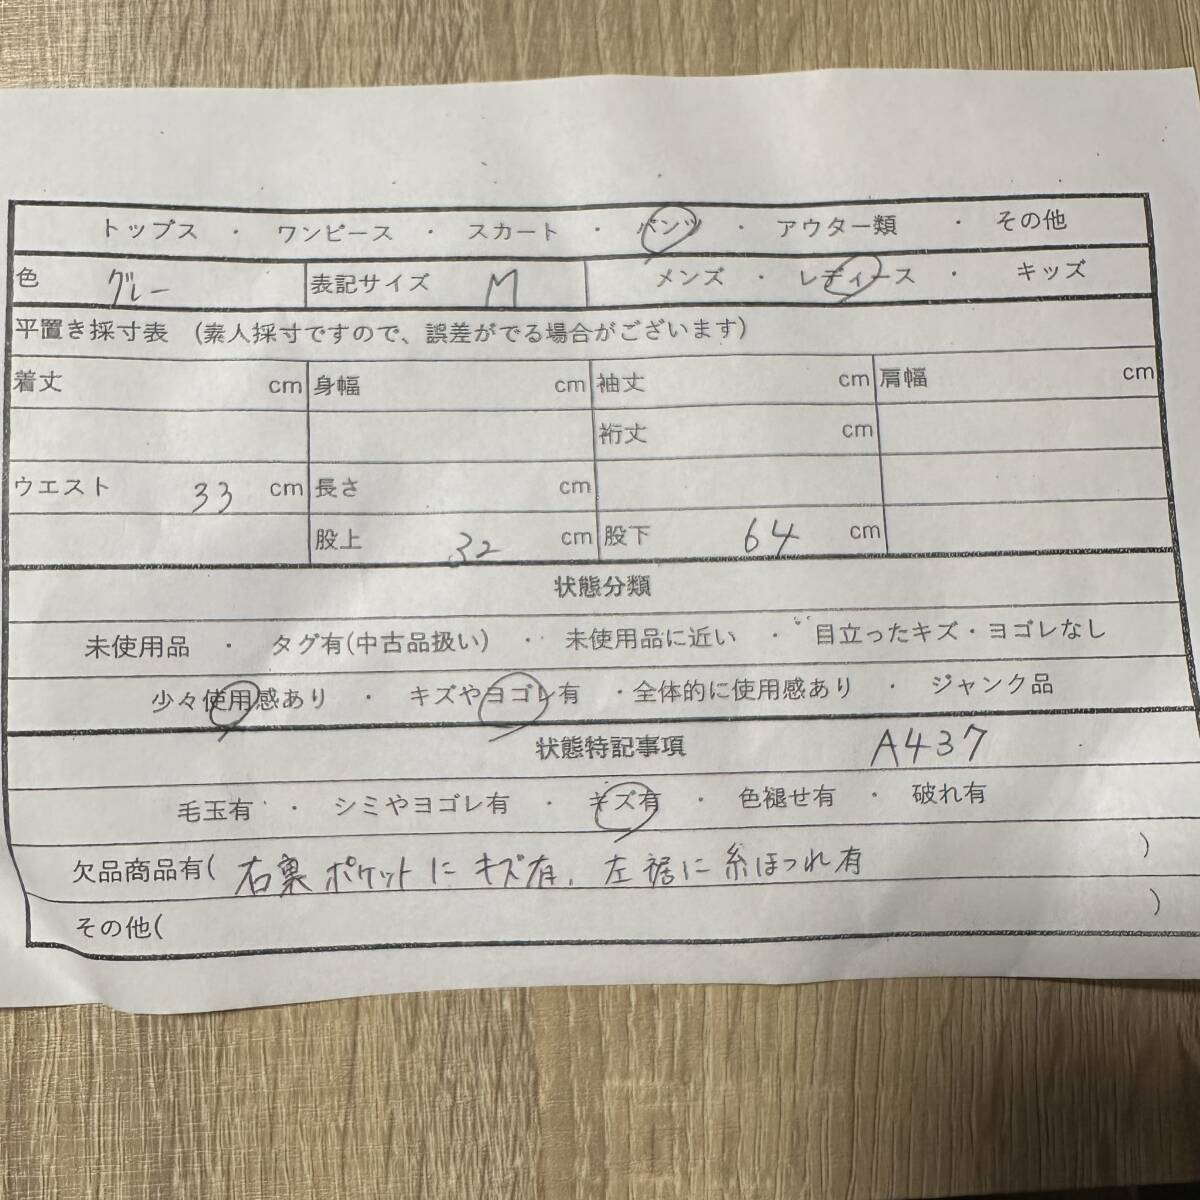 トップス ・ ワンピース ・ スカート ・ パンツ ・ アウター類 ・ その他
色 グレー 表記サイズ M メンズ ・ レディース ・ キッズ
平置き採寸表 (素人採寸ですので、誤差がでる場合がございます)
着丈 cm 身幅 cm 袖丈 cm 肩幅 cm
裄丈 cm
ウエスト 33 cm 長さ cm
股上 32 cm 股下 64 cm
状態分類
未使用品 ・ タグ有(中古品扱い) ・ 未使用品に近い ・ 目立ったキズ・ヨゴレなし
少々使用感あり ・ キズやヨゴレ有 ・全体的に使用感あり ・ ジャンク品
状態特記事項 A437
毛玉有 ・ シミやヨゴレ有 ・ キズ有 ・ 色褪せ有 ・ 破れ有
欠品商品有( 右裏ポケットにキズ有、左裾に糸ほつれ有 )
その他( )